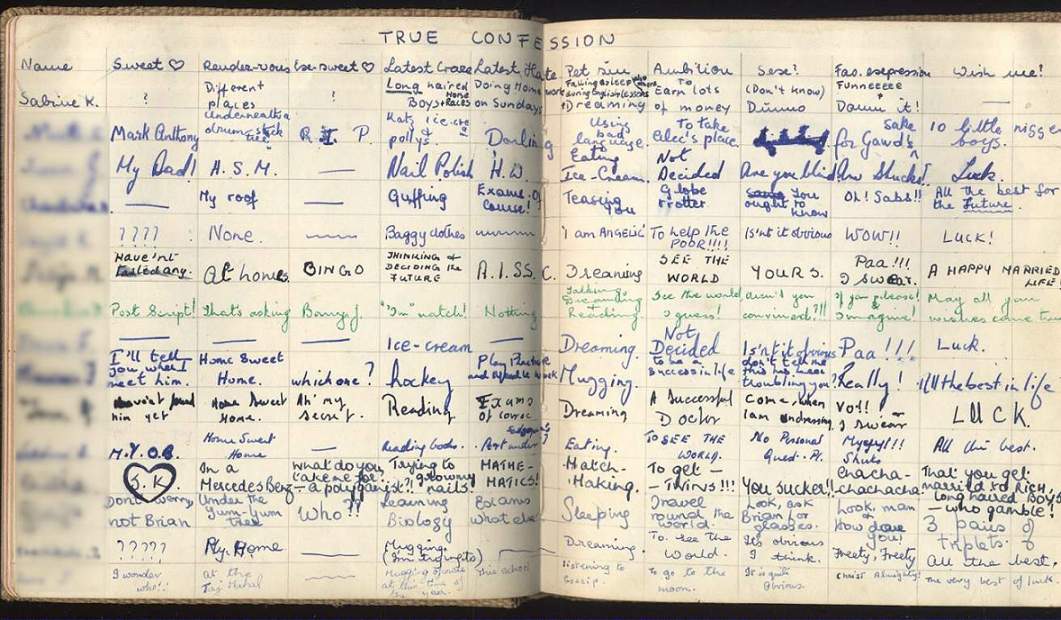 TRUE CONFESSION
Name Sweet ♡ Rendez-vous Ex-sweet ♡ Latest Craze Latest Hate Pet sin Ambition Sexe? Fav. expression Wish me!
Sabine K. ? Different places Long haired Boys + Races Doing Home work on Sundays Dreaming Earn lots of money (Don't know) Dunno Funneeee Damn it!
Mark Anthony Underneath a drum-stick tree R. I. P. Kats, ice-cre pollys. Darling Using bad language. To take Alec's place. for Gawd's sake 10 little nigg boys.
My Dad! H. S. M. — Nail Polish H.W. Eating Ice-Cream. Not Decided Are you blind Luck.
— My roof — Guffing Exams! Of Course! Teasing you Globe trotter You ought to know Oh! Sabs!! All the best for the Future.
???? None. — Baggy clothes "I am ANGELIC" To help the POOR!!!! Isn't it obvious WOW!! LUCK!
Have'nt tasted any. At home. BINGO THINKING & DECIDING the FUTURE A.I.S.S.C. Dreaming SEE THE WORLD YOURS. Paa!!! I swear. A HAPPY MARRIED LIFE!
Post Script! Thats asking "I'm" natch! Nothing Talking Dreaming Reading See the world I guess! aren't you convinced?!! If you please! Imagine! May all your wishes come tru
— — — Ice-cream — Dreaming. Not Decided Isn't it obvious Paa!!! Luck.
I'll tell you when I meet him. Home Sweet Home. which one? hockey Mugging. to be a success in life don't tell me this has been troubling you? Really! All the best in life
Haven't found him yet Home Sweet Home. Ah' my secret. Reading Exams of course Dreaming A Successful Doctor Come, when I am undressing. I swear LUCK.
M.Y.O.B. Home Sweet Home Reading books.. Eating. TO SEE THE WORLD. No Personal Quest. Pl. All the best.
S.K In a Mercedes Benz What do you take me for? — a polyganist?! Trying to grow my nails! MATHE-MATICS! Match-Making. To get — TWINS!!! YOU SUCKER!! Chachacha-chachacha That you get married to a RICH, long haired BOY — who gamble!
Don't worry, not Brian Under the Yum-Yum tree Who?? Learning Biology Exams what else Sleeping Travel round the world. Look, ask Brian for glasses. Look, man How dare you! 3 pairs of triplets.
????? My Home — Mugging. — Dreaming. To see the World. Its obvious I think. Freety, Freety all the best.
I wonder who!! at the Taj Mahal — Mugging of notes at this time of the year. This school Listening to Gossip. To go to the moon. It is quite Obvious Christ Almighty! The very best of luck.